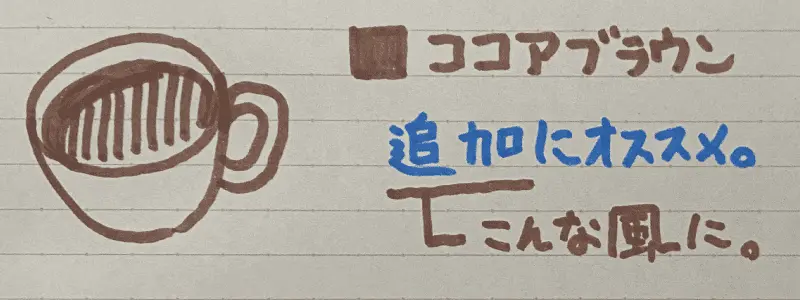 ココアブラウン
追加にオススメ。
こんな風に。